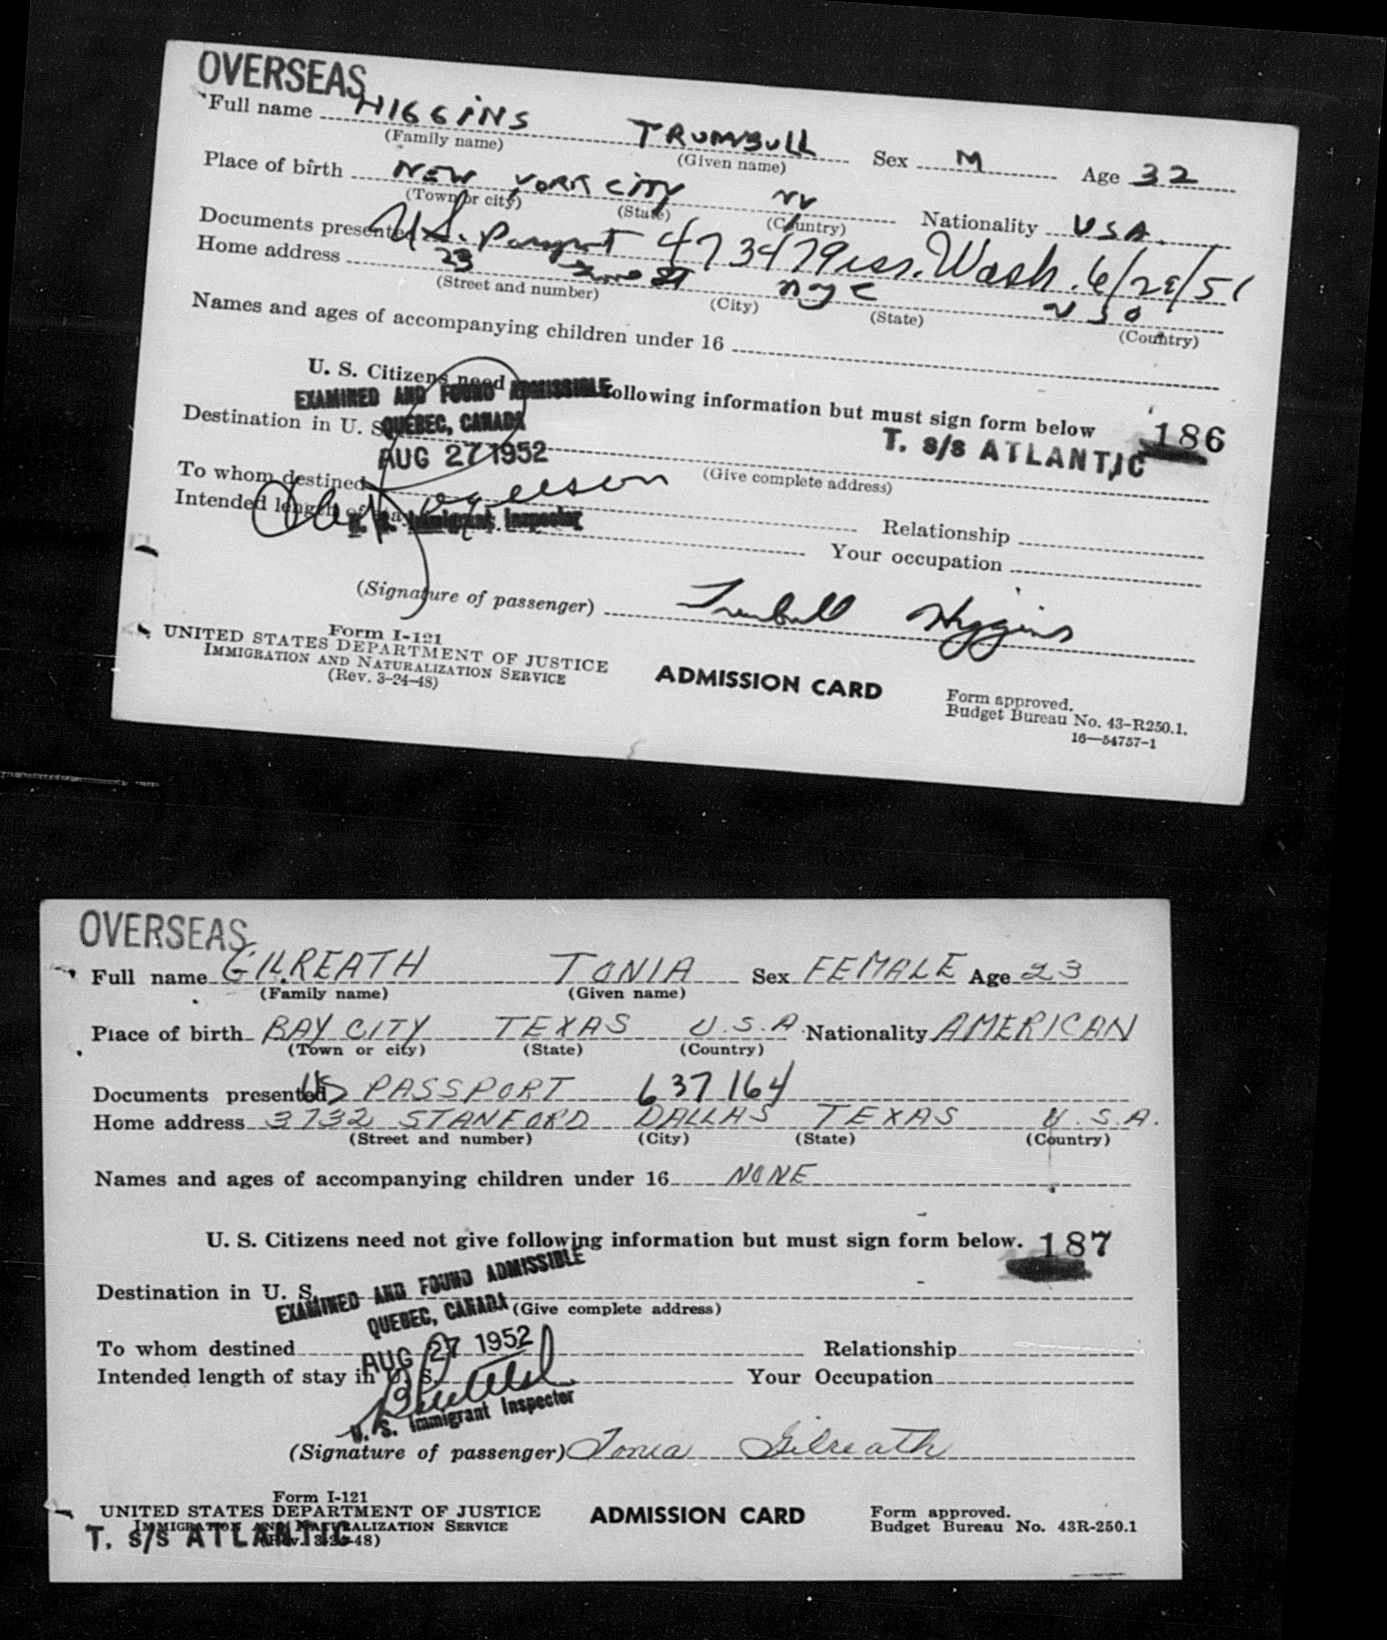 OVERSEAS
Full name HIGGINS TRUMBULL Sex M Age 32
(Family name) (Given name)
Place of birth NEW YORK CITY NY Nationality USA.
(Town or city) (State) (Country)
Documents presented U.S. Passport 473479 iss. Wash. 6/28/51
Home address 23 St nyc USA
(Street and number) (City) (State) (Country)
Names and ages of accompanying children under 16
U. S. Citizens need following information but must sign form below
EXAMINED AND FOUND ADMISSIBLE
186
Destination in U. S. QUEBEC, CANADA T. s/s ATLANTIC
AUG 27 1952
(Give complete address)
To whom destined Relationship
Intended length of stay Your occupation
U. S. Immigrant Inspector
(Signature of passenger) Trumbull Higgins
Form I-121
UNITED STATES DEPARTMENT OF JUSTICE
IMMIGRATION AND NATURALIZATION SERVICE
(Rev. 3-24-48)
ADMISSION CARD
Form approved.
Budget Bureau No. 43-R250.1.
16—54757-1
OVERSEAS
Full name GILREATH TONIA Sex FEMALE Age 23
(Family name) (Given name)
Place of birth BAY CITY TEXAS U.S.A. Nationality AMERICAN
(Town or city) (State) (Country)
Documents presented US PASSPORT 637164
Home address 3732 STANFORD DALLAS TEXAS U.S.A.
(Street and number) (City) (State) (Country)
Names and ages of accompanying children under 16 NONE
U. S. Citizens need not give following information but must sign form below.
187
Destination in U. S.
EXAMINED AND FOUND ADMISSIBLE
QUEBEC, CANADA
(Give complete address)
AUG 27 1952
To whom destined Relationship
Intended length of stay in U. S. Your Occupation
U. S. Immigrant Inspector
(Signature of passenger) Tonia Gilreath
Form I-121
UNITED STATES DEPARTMENT OF JUSTICE
IMMIGRATION AND NATURALIZATION SERVICE
(Rev. 3-24-48)
T. s/s ATLANTIC
ADMISSION CARD
Form approved.
Budget Bureau No. 43R-250.1